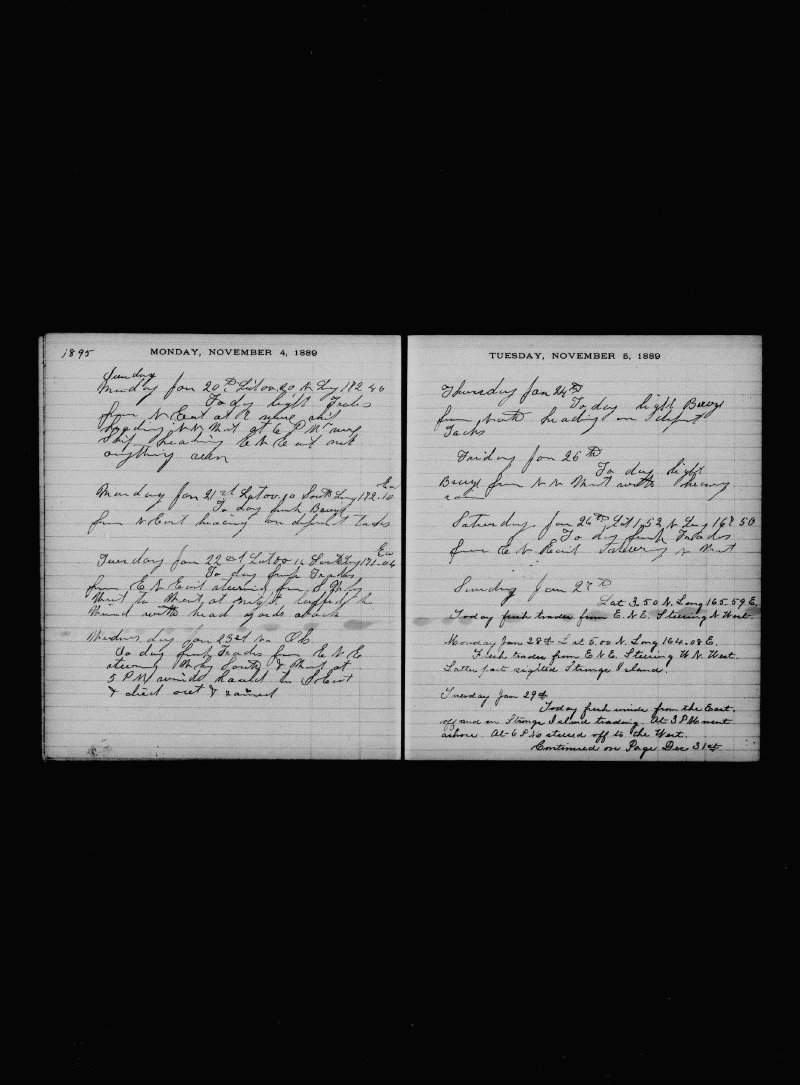 1895
MONDAY, NOVEMBER 4, 1889
Sunday
Jan 20th Lat 00.20 N Long 172 40
To day light Trades
from N East at 8 wore ship
heading N N West at 6 P M wore
Ship heading E N East not
anything seen
Ea
Monday Jan 21st Lat 00.10 South Long 172.10
To day fresh
from N East heading on difrent tacks
Ea
Tuesday Jan 22 Lat 00 South Long 171.04
To day fresh Trades
from E N East steering from S
West to West at
Wind with head yards aback
Wednesday Jan 23rd
To day fresh Trades from E N E
steering South & West at
5 P M winds hauld to S East
& died out & rained
TUESDAY, NOVEMBER 5, 1889
Thursday Jan 24th
To day light
from North heading on difrent
Tacks
Friday Jan 25th
To day light
from N N West with heavy
rain
Saturday Jan 26th Lat 1.52 N Long 168 50
To day fresh Trades
from E N East steering N West
Sunday Jan 27th
Lat 3.50 N. Long 165.59 E.
Today fresh trades from E.N.E. Steering N West.
Monday Jan 28th Lat 5.00 N. Long 164.08 E.
Fresh trades from E N E. Steering W. N. West.
Latter part sighted Strongs Island.
Tuesday Jan 29th
Today fresh winds from the East.
off and on Strongs Island trading. At 3 P.M. went
ashore. At 6 P.M. steered off to the West.
Continued on Page Dec 31st